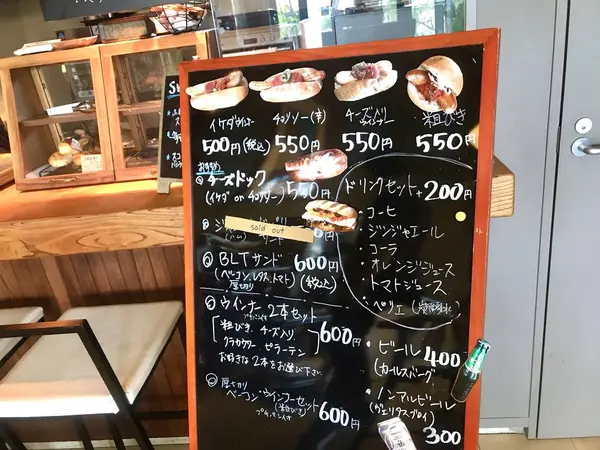 イケダウインナー
チョリソー(辛)
チーズ入り
ウインナー
粗びき
500円(税込)
550円
550円
550円
おすすめ
チーズドック 550円
(イケダ or チョリソー)
sold out
円
BLTサンド 600円
(ベーコン、レタス、トマト) (税込)
厚切り
ウインナー2本セット
粗びき チーズ入り 600円
クラカウアー ビラーテン
お好きな2本をお選び下さい
厚切り
ベーコン・ウインナーセット
(粗びき) 600円
ドリンクセット+200円
・コーヒー
・ジンジャエール
・コーラ
・オレンジジュース
・トマトジュース
・ペリエ(炭酸水)
・ビール 400
(カールスバーグ)
・ノンアルビール
(ヴェリタスブロイ) 300